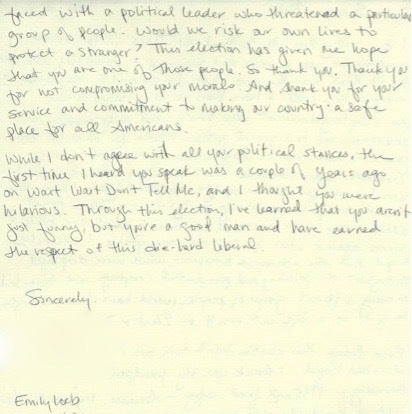 faced with a political leader who threatened a particular
group of people. Would we risk our own lives to
protect a stranger? This election has given me hope
that you are one of those people. So thank you. Thank you
for not compromising your morals. And thank you for your
service and commitment to making our country a safe
place for all Americans.
While I don't agree with all your political stances, the
first time I heard you speak was a couple of years ago
on Wait Wait Don't Tell Me, and I thought you were
hilarious. Through this election, I've learned that you aren't
just funny, but you're a good man and have earned
the respect of this die-hard liberal.
Sincerely,
Emily Loeb